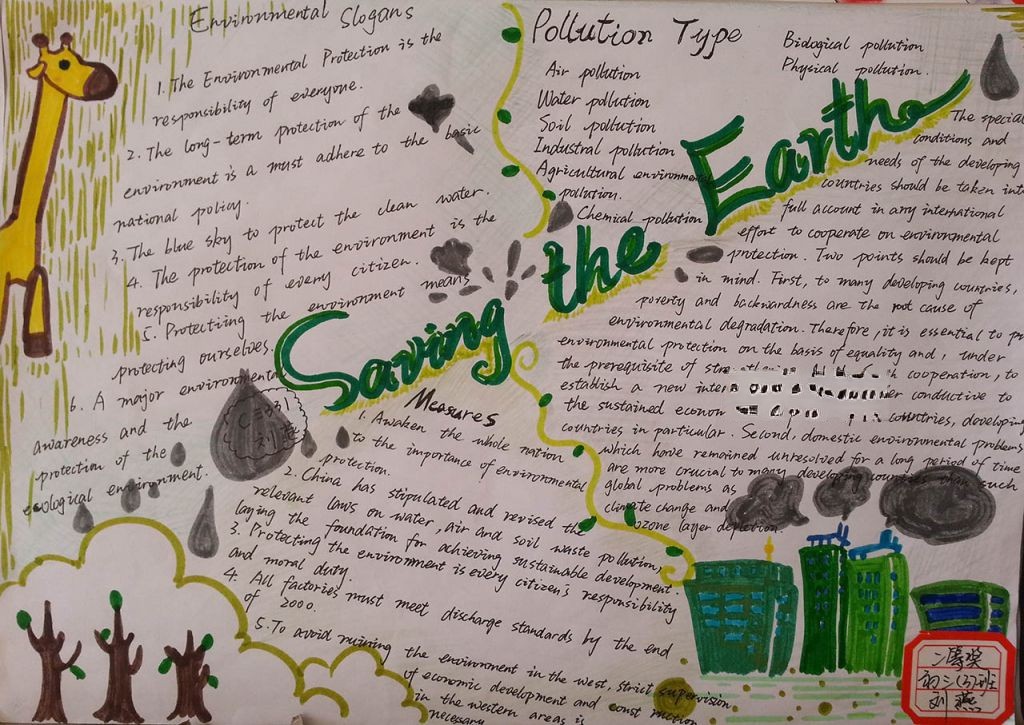 Environmental Slogans
1. The Environmental Protection is the
responsibility of everyone.
2. The long-term protection of the
environment is a must adhere to the basic
national policy.
3. The blue sky to protect the clean water.
4. The protection of the environment is the
responsibility of every citizen.
5. Protectiing the environment means
protecting ourselves
6. A major environmental
awareness and the
protection of the
ecological environment.
Pollution Type
Air pollution
Water pollution
Soil pollution
Industral pollution
Agricultural environmental
pollution.
Chemical pollution
Biological pollution
Physical pollution.
Saving the Earth
The special
conditions and
needs of the developing
countries should be taken into
full account in any international
effort to cooperate on environmental
protection. Two points should be kept
in mind. First, to many developing countries,
poverty and backwardness are the root cause of
environmental degradation. Therefore, it is essential to
environmental protection on the basis of equality and, under
the prerequisite of cooperation, to
establish a new conducive to
the sustained countries,
countries in particular. Second, domestic environmental problems
which have remained unresolved for a long period of time
are more crucial to many developing countries than such
global problems as
climate change and
ozone layer depletion.
Measures
1. Awaken the whole nation
to the importance of environmental
protection.
2. China has stipulated and revised the
relevant laws on water, air and soil waste pollution,
laying the foundation for achieving sustainable development.
3. Protecting the environment is every citizen's responsibility
and moral duty.
4. All factories must meet discharge standards by the end
of 2000.
5. To avoid ruining the environment in the west, strict supervision
of economic development and construction
in the western areas is
necessary
二等奖
初二(3)班
刘燕